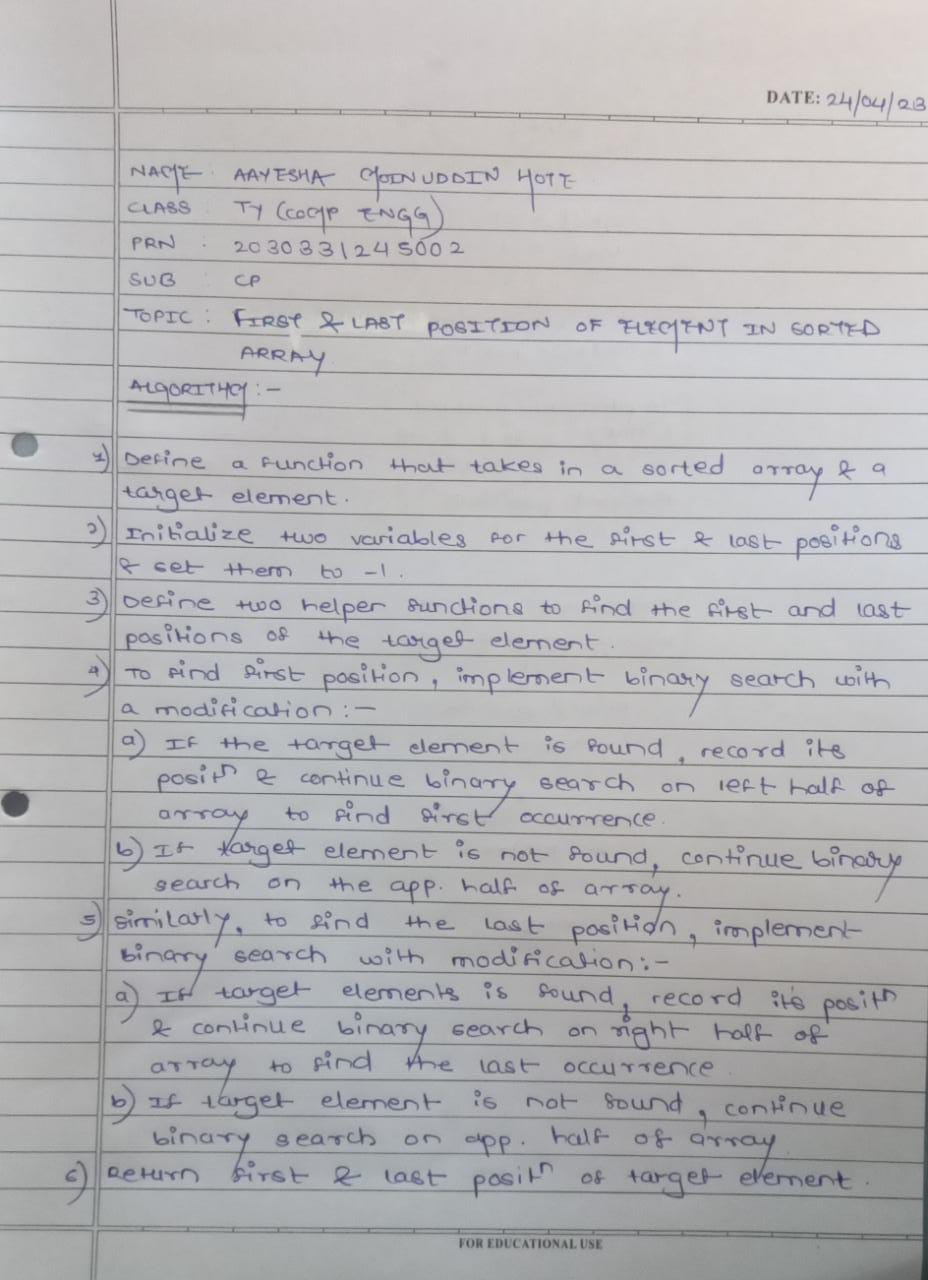 DATE: 24/04/23
NAME: AAYESHA MOINUDDIN HOTE
CLASS TY (COMP ENGG)
PRN : 2030331245002
SUB CP
TOPIC : FIRST & LAST POSITION OF ELEMENT IN SORTED
ARRAY
ALGORITHM :-
1) Define a function that takes in a sorted array & a
target element.
2) Initialize two variables for the first & last positions
& set them to -1.
3) Define two helper functions to find the first and last
positions of the target element.
4) To find first position, implement binary search with
a modification :-
a) If the target element is found, record its
positn & continue binary search on left half of
array to find first occurrence.
b) If target element is not found, continue binary
search on the app. half of array.
5) similarly, to find the last position, implement
binary search with modification :-
a) If target elements is found, record it's positn
& continue binary search on right half of
array to find the last occurrence.
b) If target element is not found, continue
binary search on app. half of array
6) Return first & last positn of target element.
FOR EDUCATIONAL USE